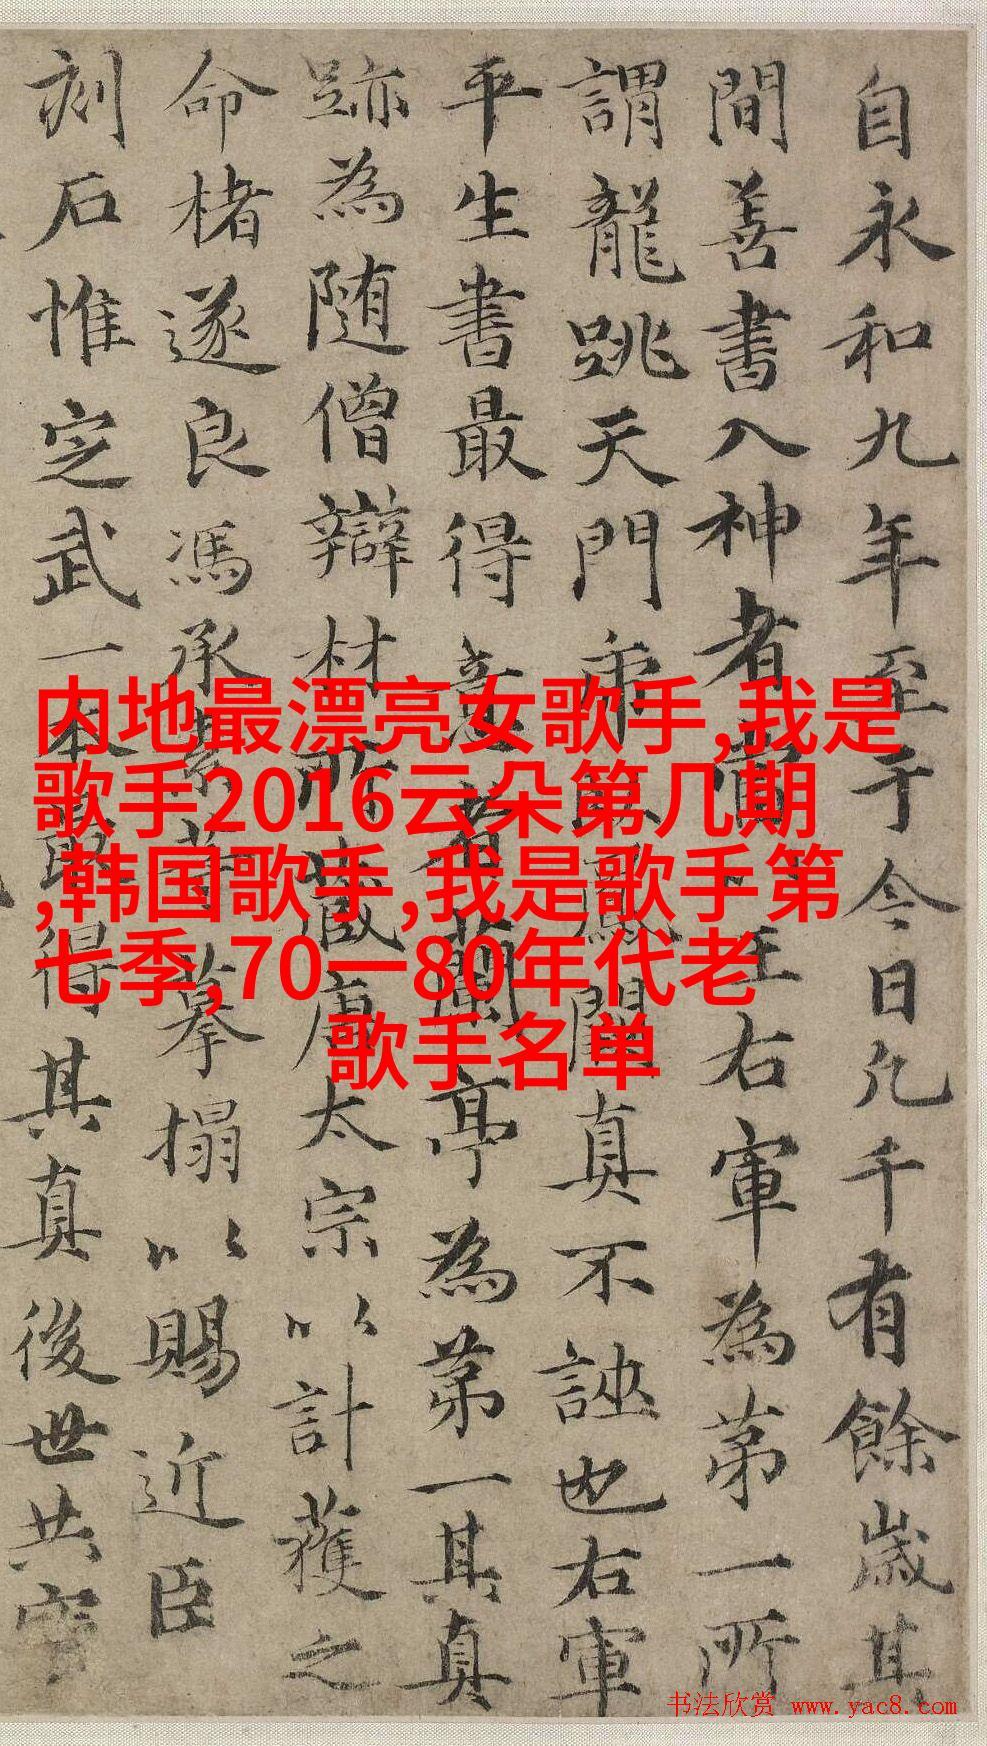 自永和九年至于今日凡千有餘歲其
間善書入神者當王右軍為第一所
謂龍跳天門虎臥鳳閣真不誣也右軍
平生書最得意者蘭亭為第一其真
跡為随僧辯材所藏唐太宗以計獲之
命楮遂良馮承素等摹搨以賜近臣
刻石惟定武一本得其真後世共寳
内地最漂亮女歌手,我是
歌手2016云朵第几期
,韩国歌手,我是歌手第
七季,70一80年代老
歌手名单
书法欣赏 www.yac8.com